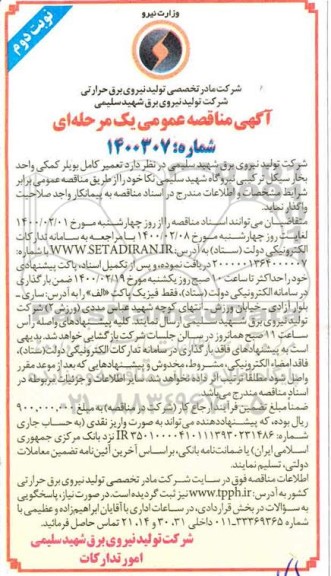 وزارت نیرو
نوبت دوم
شرکت مادر تخصصی تولید نیروی برق حرارتی
شرکت تولید نیروی برق شهید سلیمی
آگهی مناقصه عمومی یک مرحله‌ای
شماره: ۱۴۰۰۳۰۷
شرکت تولید نیروی برق شهید سلیمی در نظر دارد تعمیر کامل بویلر کمکی واحد
بخار سیکل ترکیبی نیروگاه شهید سلیمی نکا خود را از طریق مناقصه عمومی برابر
شرایط مشخصات و اطلاعات مندرج در اسناد مناقصه به پیمانکار واجد صلاحیت
واگذار نماید.
متقاضیان می‌توانند اسناد مناقصه را از روز چهارشنبه مورخ ۱۴۰۰/۰۲/۰۱
لغایت روز چهارشنبه مورخ ۱۴۰۰/۰۲/۰۸ با مراجعه به سامانه تدارکات
الکترونیکی دولت (ستاد) به آدرس: WWW.SETADIRAN.IR با شماره:
دریافت نموده، و پس از تکمیل اسناد، پاکت پیشنهادی
خود را حداکثر تا ساعت ۱۰ صبح روز یکشنبه مورخ ۱۴۰۰/۰۲/۱۹ ضمن بارگذاری
در سامانه الکترونیکی دولت (ستاد)، فقط فیزیک پاکت «الف» را به آدرس: ساری -
بلوار آزادی - خیابان ورزش - انتهای کوچه شهید عباس
شهید سلیمی ارسال نمایند. کلیه پیشنهادهای واصله راس
ساعت ۱۱ صبح همانروز در سالن جلسات شرکت بازگشایی خواهد شد. بدیهی
است به پیشنهادهای فاقد بارگذاری در سامانه تدارکات الکترونیکی دولت (ستاد)،
فاقد امضاء الکترونیکی، مشروط، مخدوش و پیشنهادهایی که بعد از موعد مقرر
واصل شود مطلقا ترتیب اثر داده نخواهد شد. سایر اطلاعات و جزئیات مربوطه در
اسناد مناقصه مندرج می‌باشد.
ضمنا مبلغ تضمین فرآیند ارجاع کار (شرکت در مناقصه) به مبلغ ۹۰۰,۰۰۰,۰۰۰
ریال بوده، که پیشنهاددهنده می‌تواند به صورت واریز نقدی (به حساب جاری
شماره: نزد بانک مرکزی جمهوری
اسلامی ایران) یا ضمانت‌نامه بانکی، براساس آخرین آئین‌نامه تضمین معاملات
دولتی، تسلیم نمایند.
اطلاعات مناقصه فوق در سایت شرکت مادر تخصصی تولید نیروی برق حرارتی
کشور به آدرس: www.tpph.ir نیز ثبت گردیده است. در صورت نیاز، پاسخگویی
به سوالات در بخش قراردادی، در ساعات اداری با آقایان ابراهیم‌زاده و عظیمی با
شماره: ۰۱۱-۳۳۳۶۹۳۶۵ داخلی ۳۰،۳۱ و ۲۱،۱۴ تماس حاصل فرمائید.
شرکت تولید نیروی برق شهید سلیمی
امور تدارکات